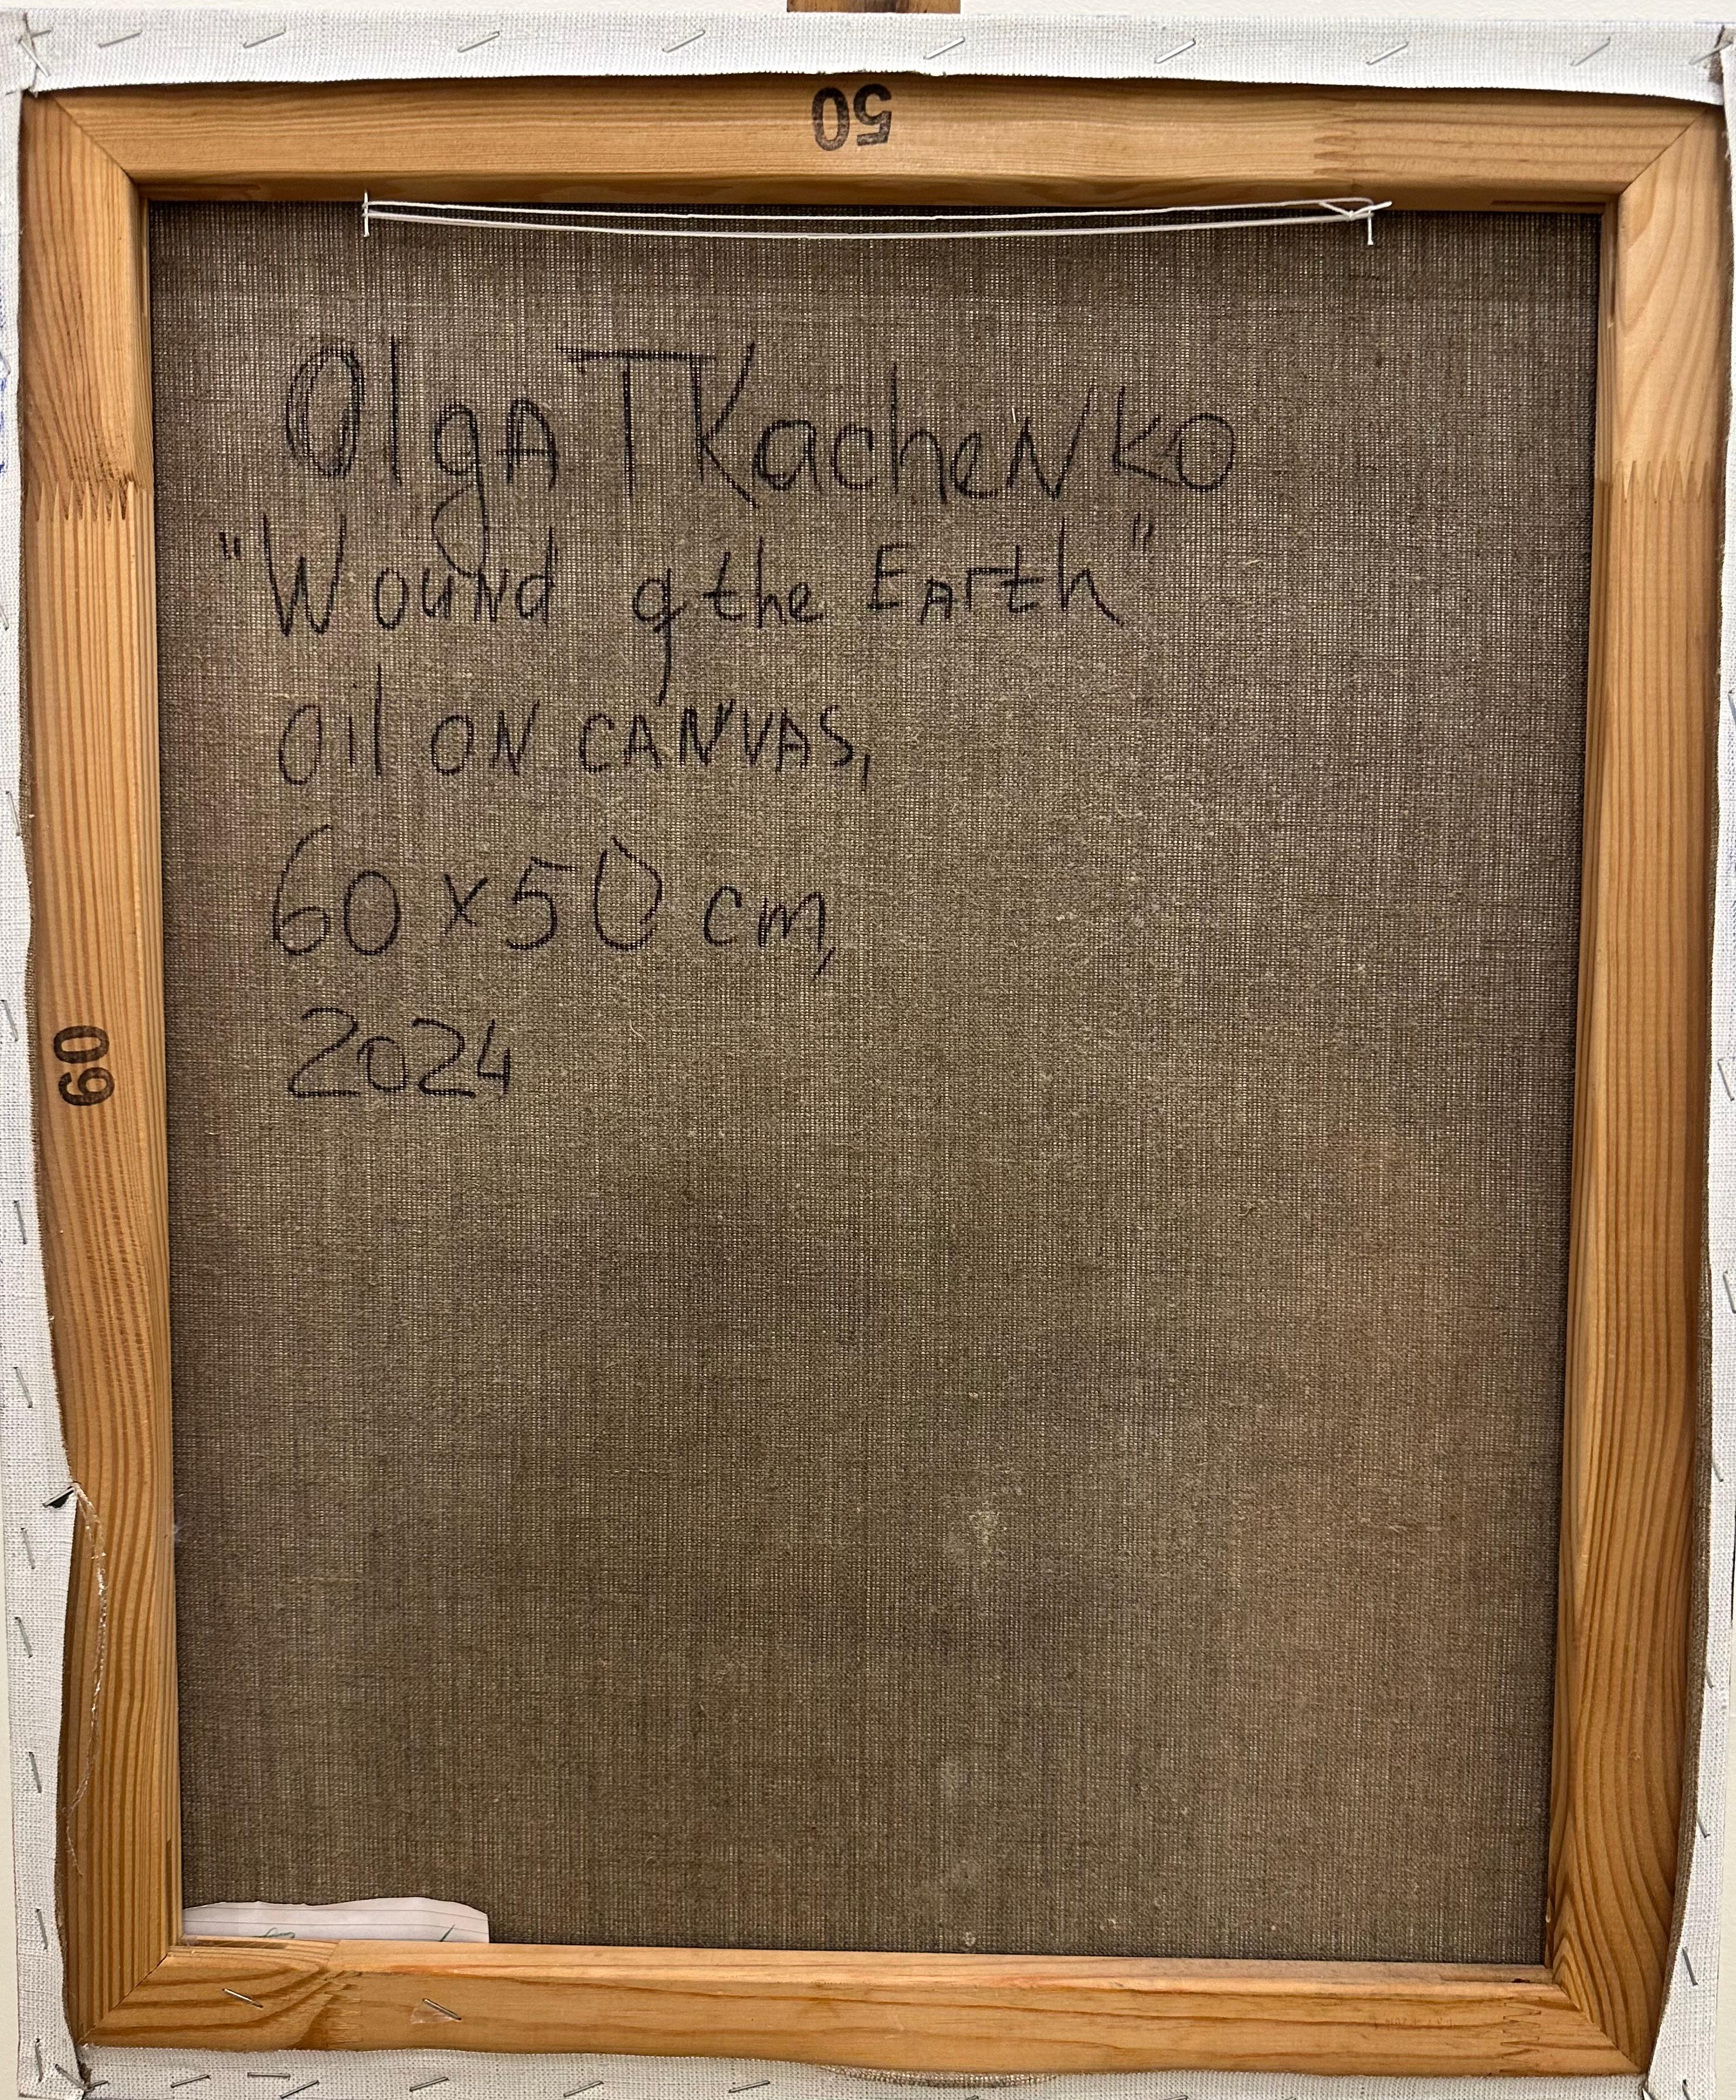 50
OlgA TKacheNKO
"Wound of the EArth"
Oil ON CANVAS,
60x50 cm,
2024
60